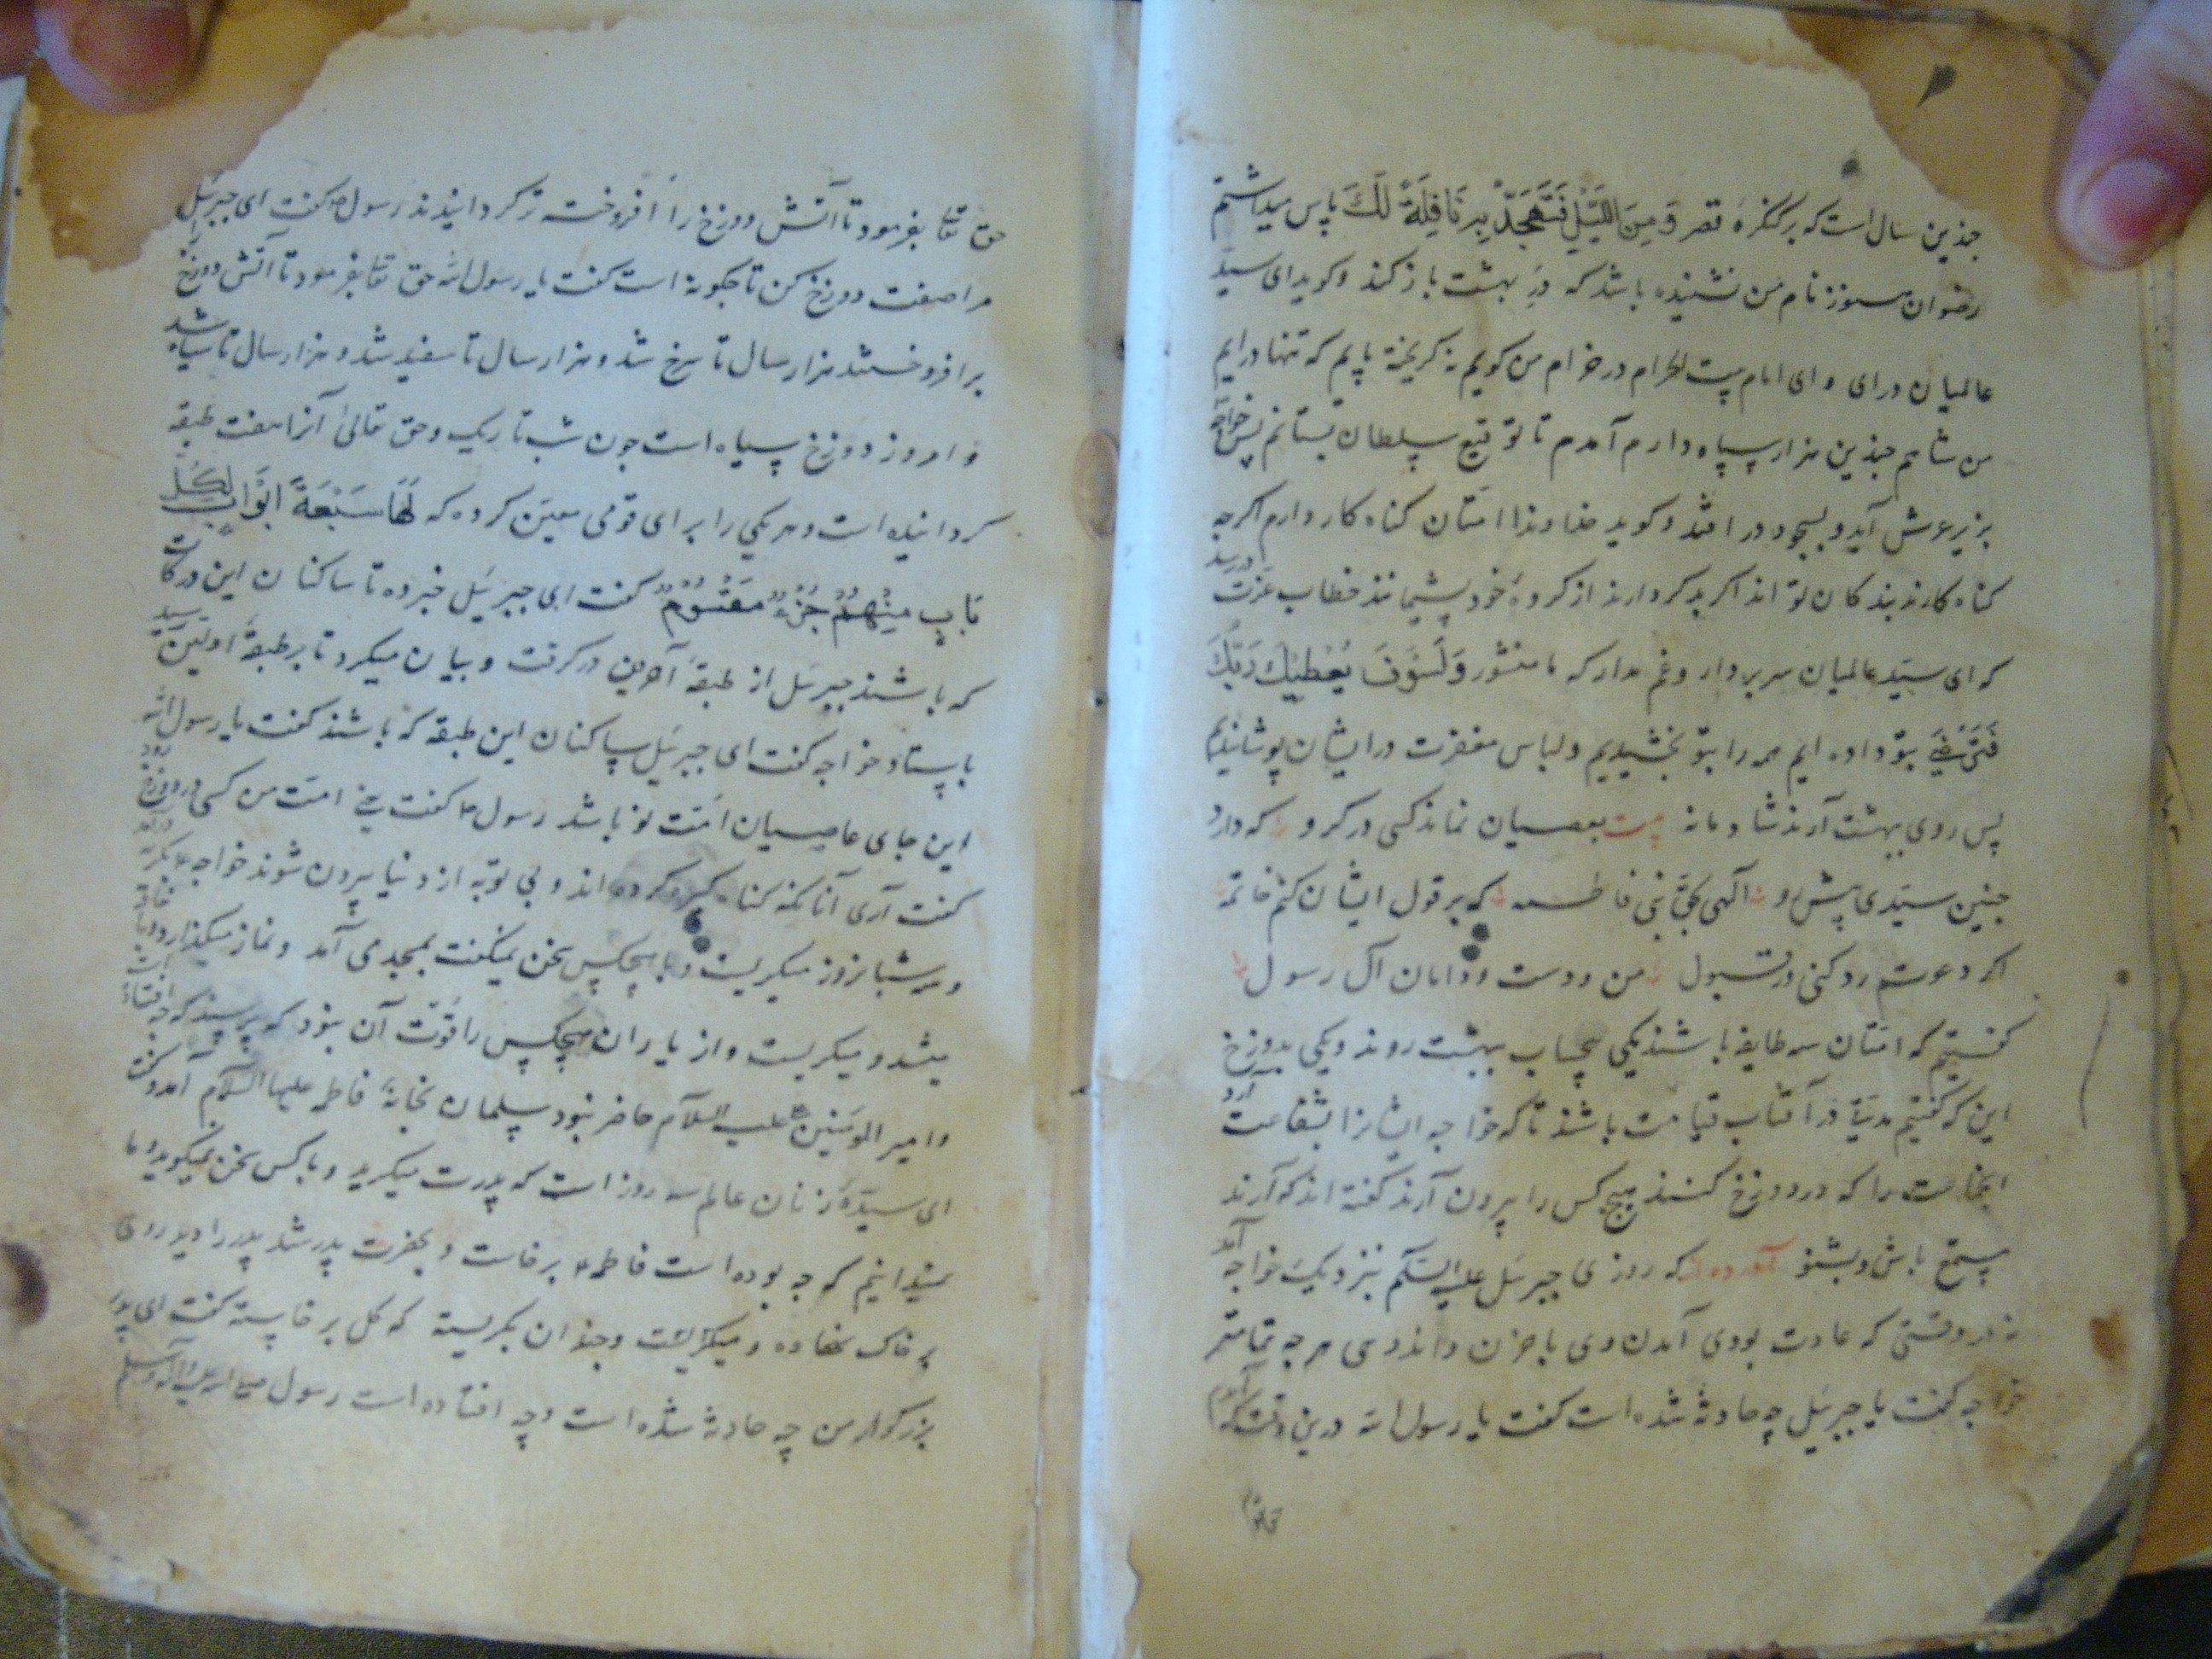 جندین سال است که بر کنکرهٔ قصر وَ مِنَ اللَّیْلِ فَتَهَجَّدْ بِهِ نَافِلَةً لَكَ پاس میداشتم
رضوان هنوز نام من نشنیده باشد که درِ بهشت باز کند و کوید ای سید
عالمیان درای و ای امام بیت الحرام در خرام من کویم نه کریخته پایم که تنها درایم
من شاهم جندین هزار سپاه دارم آمدم تا توقیع سلطان بستانم پس خواجه
بزیر عرش آید و بسجود در افتد و کوید خداوندا امتان کناه کار دارم اکرجه
کناه کارند بندکان تو اند اکر بد کردارند از کردهٔ خود پشیمانند خطاب عزت در رسد
که ای سید عالمیان سر بردار و غم مدار که ما منشور وَلَسَوْفَ یُعْطِیكَ رَبُّكَ
فَتَرْضَی بتو داده ایم همه را بتو بخشیدیم و لباس مغفرت در ایشان پوشانیدیم
پس روی ببهشت آرند شادمانه بیت بعصیان نماند کسی در کرو که دارد
جنین سیدی پیش رو الهی بحق بنی فاطمه که بر قول ایشان کنم خاتمه
اکر دعوتم رد کنی ور قبول من و دست و دامان آل رسول
کفتیم که امتان سه طایفه باشند یکی بیحساب ببهشت روند و یکی بدوزخ
این که کفتیم مدتی در آفتاب قیامت باشند تا که خواجه ایشانرا بشفاعت آرد
اینجماعت را که در دوزخ کنند هیچ کس را بیرون آرند کفته اند که آرند
مستمع باش و بشنو آورده اند که روزی جبرئیل علیه السلم بنزدیک خواجه آمد
نه در وقتی که عادت بودی آمدن وی با حزن و اندوهی هر چه تمامتر
خواجه کفت یا جبرئیل چه حادثه شده است کفت یا رسول الله درین وقت که آمدم
حق تعا بفرمود تا آتش دوزخ را افروخته تر کردانیدند رسول م کفت ای جبرئیل
مرا صفت دوزخ کن تا جکونه است کفت یا رسول الله حق تعا بفرمود تا آتش دوزخ
بر افروختند هزار سال تا سرخ شد و هزار سال تا سفید شد و هزار سال تا سیاه شد
و امروز دوزخ سیاه است جون شب تاریک و حق تعالی آنرا هفت طبقه
کردانیده است و هر یکی را برای قومی معین کرده که لَهَا سَبْعَةُ اَبْوَابٍ لِکُلِّ
بَابٍ مِنْهُمْ جُزْءٌ مَقْسُومٌ کفت ای جبرئیل خبر ده تا ساکنان این درکات
که باشند جبرئیل از طبقهٔ آخرین در کرفت و بیان میکرد تا بر طبقهٔ اولین رسید
باستاد خواجه کفت ای جبرئیل ساکنان این طبقه که باشند کفت یا رسول الله
این جای عاصیان امت تو باشد رسول م کفت یعنی امت من کسی در دوزخ رود
کفت آری آنانکه کناه کبیره کرده اند و بی توبه از دنیا بیرون شوند خواجه م
و سه شبانروز میکریست و با هیچکس سخن نمیکفت بمسجد می آمد و نماز میکذارد و
میشد و میکریست و از یاران هیچکس را قوت آن نبود که بپرسد که چه افتاده است
و امیر المؤمنین علیه السلام حاضر نبود سلمان بخانهٔ فاطمه علیها السلام آمد و کفت
ای سیدهٔ زنان عالم سه روز است که پدرت میکرید و با کس سخن نمیکوید و ما
نمیدانیم که چه بوده است فاطمه برخاست و بحضرت پدر شد پدر را دید روی
بر خاک نهاده و میکریست و جندان بکریسته که کل برخاسته کفت ای پدر
بزرکوار من چه حادثه شده است و چه افتاده است رسول صلی الله علیه و آله و سلم